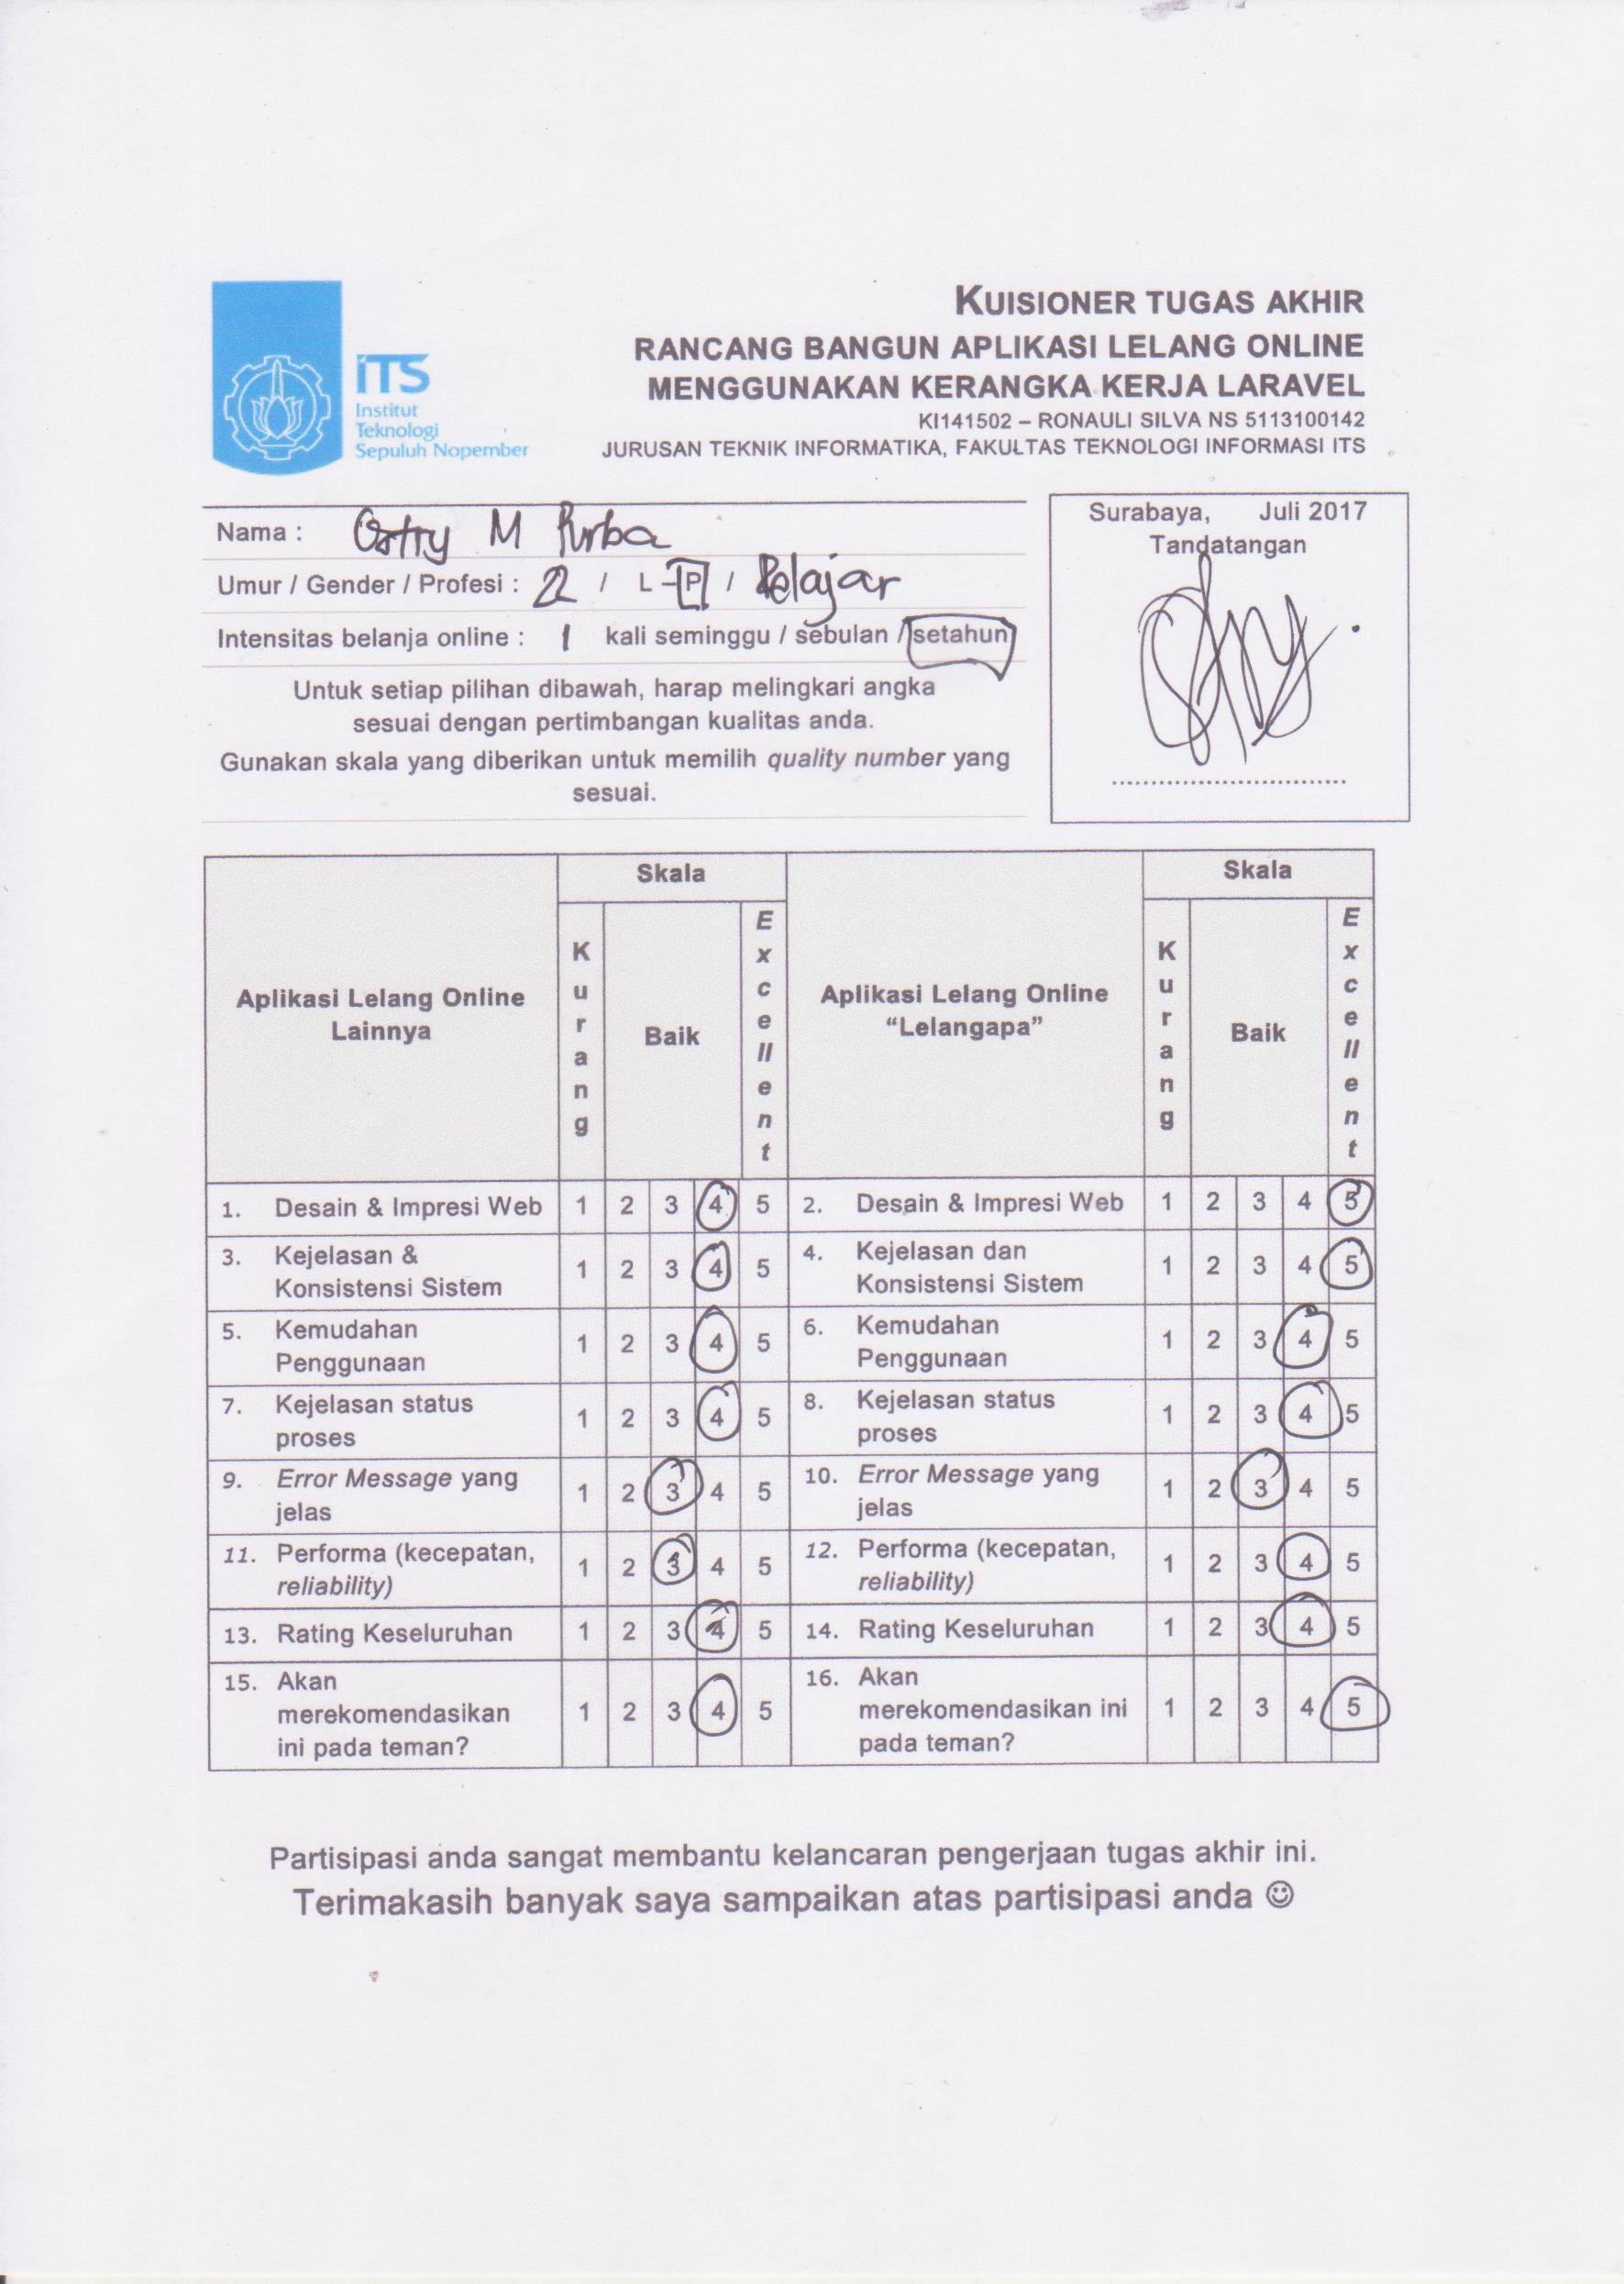 iTS
Institut
Teknologi
Sepuluh Nopember
KUISIONER TUGAS AKHIR
RANCANG BANGUN APLIKASI LELANG ONLINE
MENGGUNAKAN KERANGKA KERJA LARAVEL
KI141502 – RONAULI SILVA NS 5113100142
JURUSAN TEKNIK INFORMATIKA, FAKULTAS TEKNOLOGI INFORMASI ITS
Nama : Ostry M Purba
Umur / Gender / Profesi : 22 / L - P / Pelajar
Intensitas belanja online : 1 kali seminggu / sebulan / setahun
Untuk setiap pilihan dibawah, harap melingkari angka
sesuai dengan pertimbangan kualitas anda.
Gunakan skala yang diberikan untuk memilih quality number yang
sesuai.
Surabaya, Juli 2017
Tandatangan
Aplikasi Lelang Online
Lainnya
Skala
Kurang
Baik
Excellent
Aplikasi Lelang Online
“Lelangapa”
Skala
Kurang
Baik
Excellent
1. Desain & Impresi Web 1 2 3 4 5 2. Desain & Impresi Web 1 2 3 4 5
3. Kejelasan &
Konsistensi Sistem 1 2 3 4 5
4. Kejelasan dan
Konsistensi Sistem 1 2 3 4 5
5. Kemudahan
Penggunaan 1 2 3 4 5
6. Kemudahan
Penggunaan 1 2 3 4 5
7. Kejelasan status
proses 1 2 3 4 5
8. Kejelasan status
proses 1 2 3 4 5
9. Error Message yang
jelas 1 2 3 4 5
10. Error Message yang
jelas 1 2 3 4 5
11. Performa (kecepatan,
reliability) 1 2 3 4 5
12. Performa (kecepatan,
reliability) 1 2 3 4 5
13. Rating Keseluruhan 1 2 3 4 5 14. Rating Keseluruhan 1 2 3 4 5
15. Akan
merekomendasikan 1 2 3 4 5
ini pada teman?
16. Akan
merekomendasikan ini 1 2 3 4 5
pada teman?
Partisipasi anda sangat membantu kelancaran pengerjaan tugas akhir ini.
Terimakasih banyak saya sampaikan atas partisipasi anda ☺